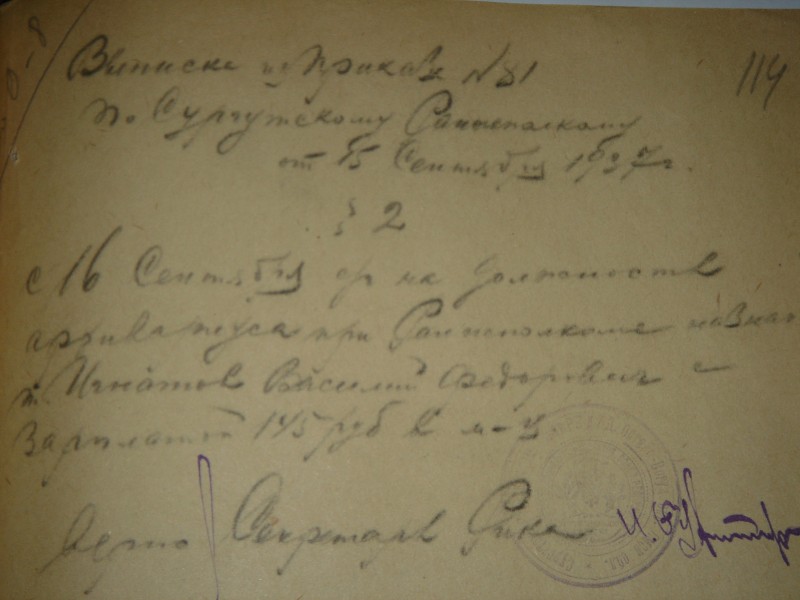 114
Выписка из Приказа №81
по Сургутскому Райисполкому
от 15 Сентября 1937 г.
§ 2
с 16 Сентября на должность
архивариуса при Райисполкоме назнач
т. Игнатов Василий Федорович с
Зарплатой 145 руб в м-ц.
Верно Секретарь Рика